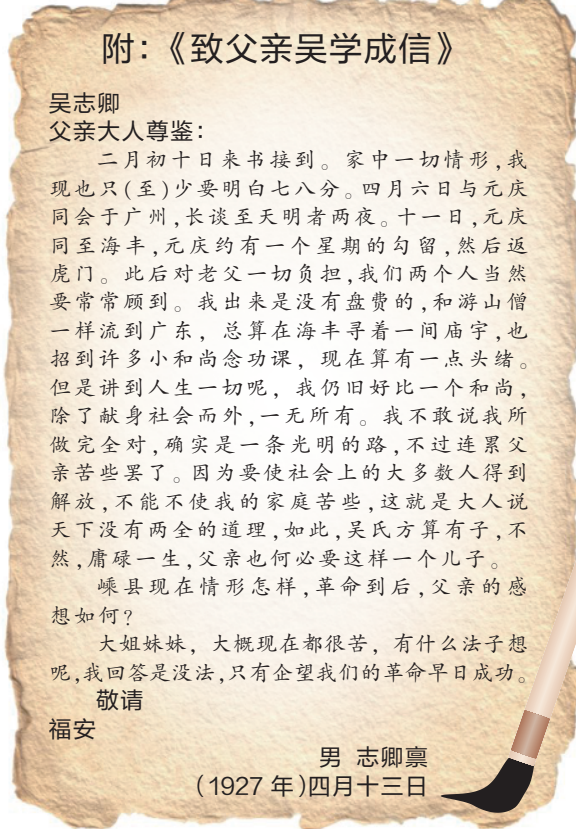 附：《致父亲吴学成信》
吴志卿
父亲大人尊鉴：
二月初十日来书接到。家中一切情形，我
现也只（至）少要明白七八分。四月六日与元庆
同会于广州，长谈至天明者两夜。十一日，元庆
同至海丰，元庆约有一个星期的勾留，然后返
虎门。此后对老父一切负担，我们两个人当然
要常常顾到。我出来是没有盘费的，和游山僧
一样流到广东，总算在海丰寻着一间庙宇，也
招到许多小和尚念功课，现在算有一点头绪。
但是讲到人生一切呢，我仍旧好比一个和尚，
除了献身社会而外，一无所有。我不敢说我所
做完全对，确实是一条光明的路，不过连累父
亲苦些罢了。因为要使社会上的大多数人得到
解放，不能不使我的家庭苦些，这就是大人说
天下没有两全的道理，如此，吴氏方算有子，不
然，庸碌一生，父亲也何必要这样一个儿子。
嵊县现在情形怎样，革命到后，父亲的感
想如何？
大姐妹妹，大概现在都很苦，有什么法子想
呢，我回答是没法，只有企望我们的革命早日成功。
敬请
福安
男 志卿禀
（1927 年）四月十三日